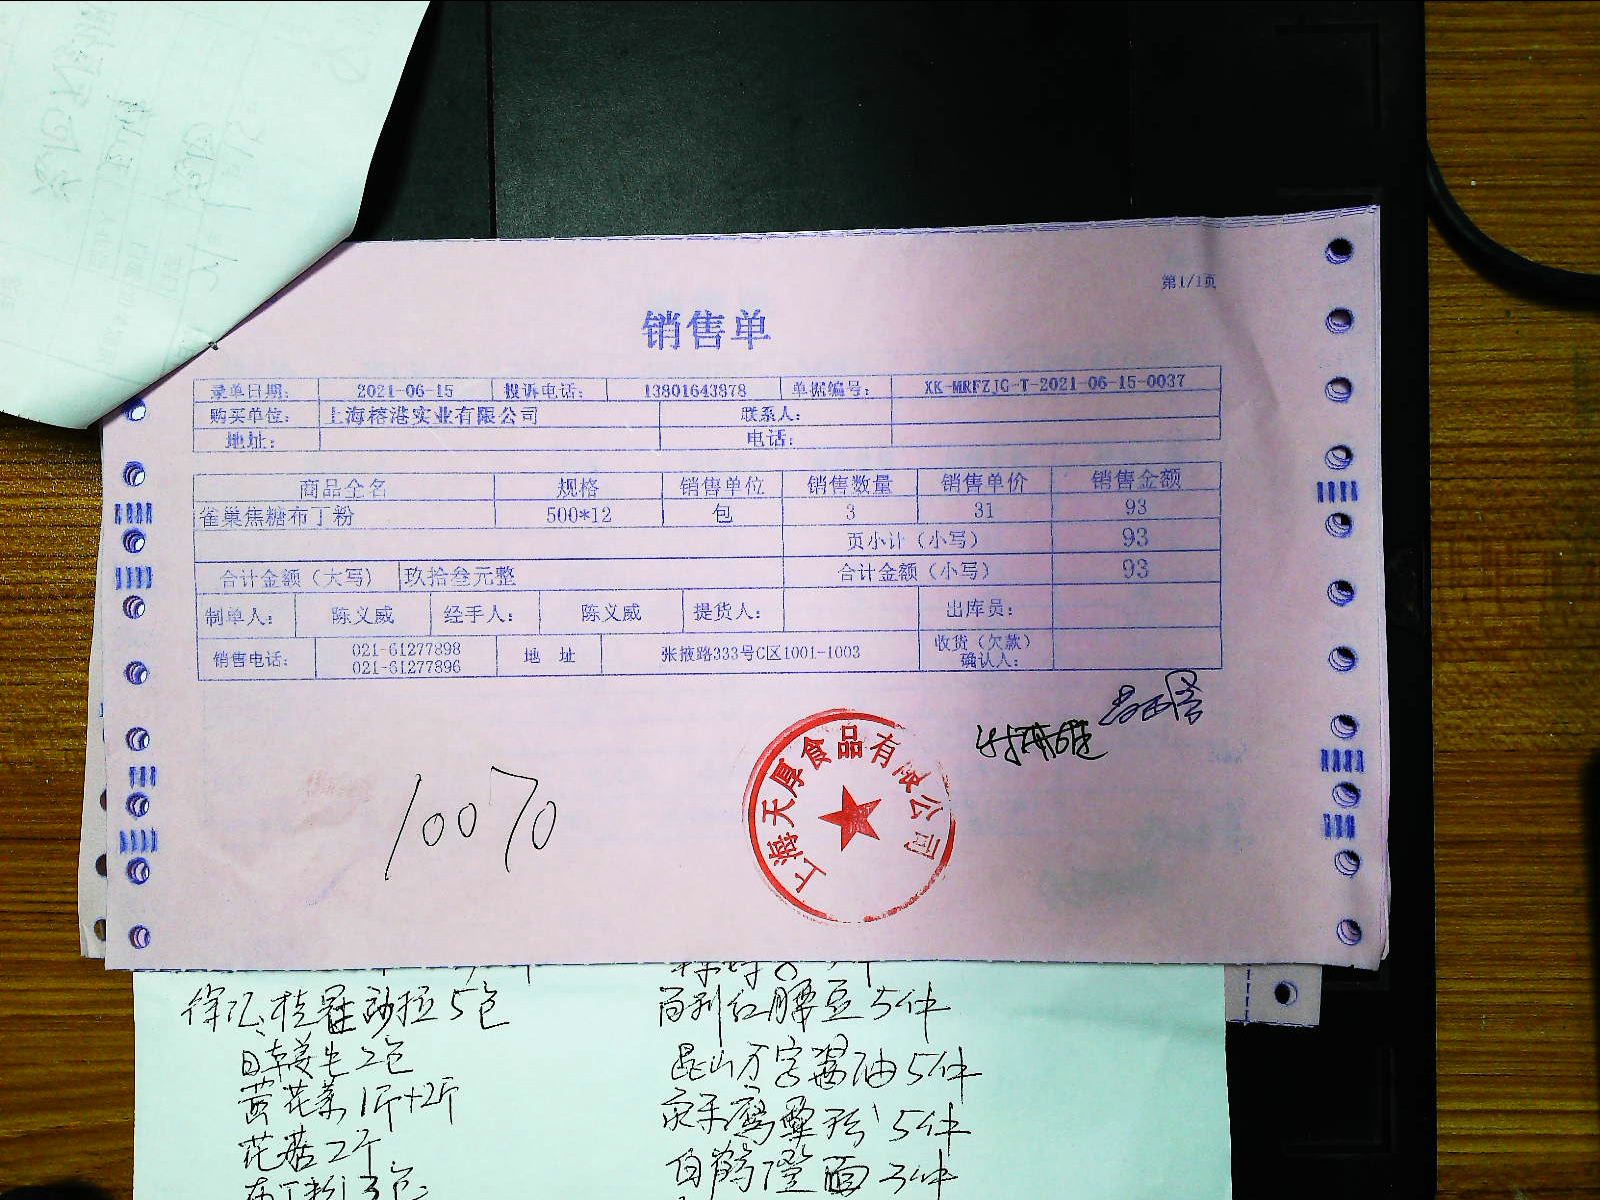 第1/1页
销售单
录单日期: 2021-06-15 投诉电话: 13801643878 单据编号: XK-MRFZJG-T-2021-06-15-0037
购买单位: 上海榕港实业有限公司 联系人:
地址: 电话:
商品全名 规格 销售单位 销售数量 销售单价 销售金额
雀巢焦糖布丁粉 500*12 包 3 31 93
页小计（小写） 93
合计金额（大写） 玖拾叁元整 合计金额（小写） 93
制单人: 陈义威 经手人: 陈义威 提货人: 出库员:
销售电话: 021-61277898 021-61277896 地 址 张掖路333号C区1001-1003 收货（欠款）确认人:
上海天厚食品有限公司
100%
徐汇 桂冠沙拉5包 高利红腰豆5件
2包 昆山万字酱油5件
黄花菜1斤+2斤 粉5件
花菇2斤 白鹤澄面3件
布丁粉3包